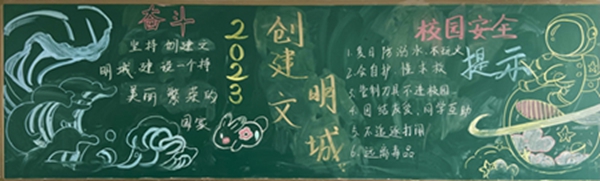 奋斗
坚持创建文
明城,建设一个特
美丽繁荣的
国家
2023
创建文
明城
校园安全
提示
1.夏日防溺水,不玩火
2.会自护 懂求救
3.管制刀具不进校园
4.团结友爱,同学互助
5.不追逐打闹
6.远离毒品